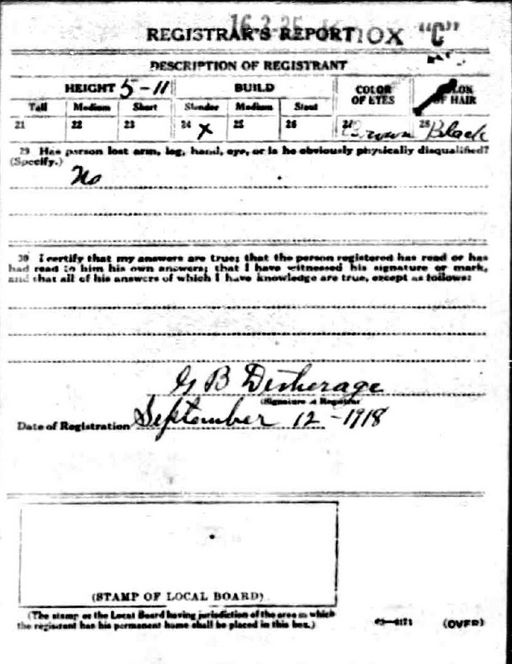 REGISTRAR'S REPORT
"C"
DESCRIPTION OF REGISTRANT
HEIGHT 5-11 BUILD COLOR OF EYES COLOR OF HAIR
Tall Medium Short Slender Medium Stout
21 22 23 24 X 25 26 27 Brown 28 Black
29 Has person lost arm, leg, hand, eye, or is he obviously physically disqualified?
(Specify.) No
30 I certify that my answers are true; that the person registered has read or has
had read to him his own answers; that I have witnessed his signature or mark,
and that all of his answers of which I have knowledge are true, except as follows:
G B Detherage
(Signature of Registrar
Date of Registration September 12 - 1918
(STAMP OF LOCAL BOARD)
(The stamp of the Local Board having jurisdiction of the area in which
the registrant has his permanent home shall be placed in this box.)
03-6171 (OVER)